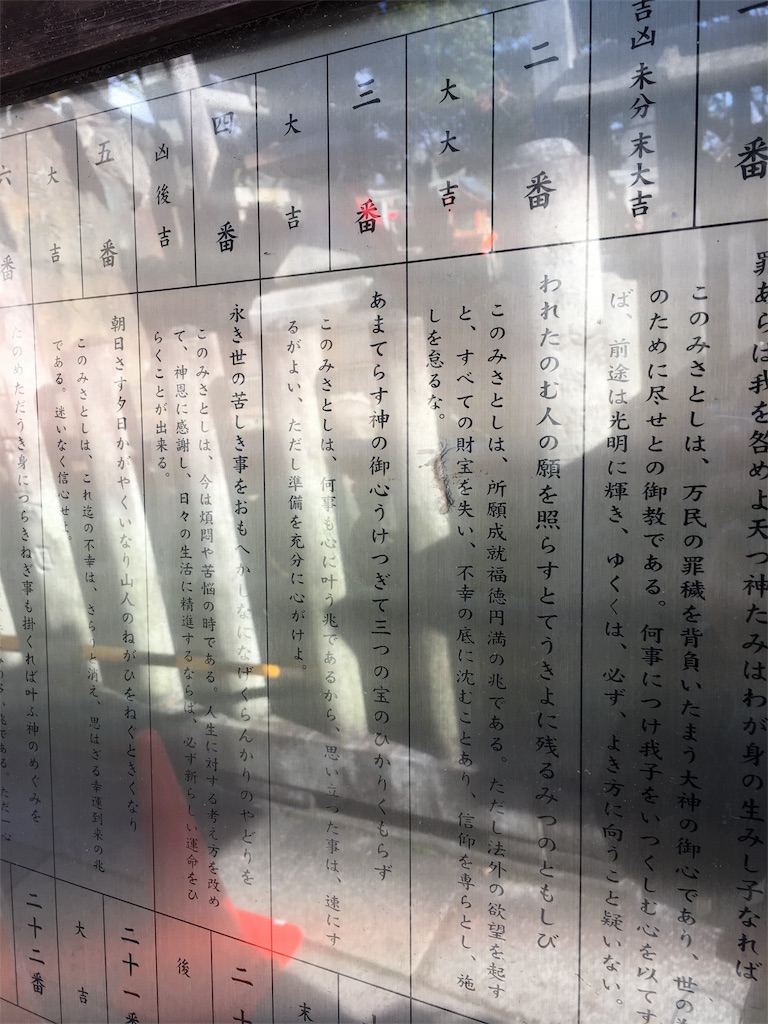 番
罪あらは我を咎めよ天つ神たみはわが身の生みし子なれば
このみさとしは、万民の罪穢を背負いたまう大神の御心であり、世の
のために尽せとの御教である。何事につけ我子をいつくしむ心を以てす
ば、前途は光明に輝き、ゆくくは、必ず、よき方に向うこと疑いない。
吉凶未分末大吉
二番
われたのむ人の願を照らすとてうきよに残るみつのともしび
このみさとしは、所願成就福徳円満の兆である。ただし法外の欲望を起す
と、すべての財宝を失い、不幸の底に沈むことあり、信仰を専らとし、施
しを怠るな。
大大吉
三番
あまてらす神の御心うけつぎて三つの宝のひかりくもらず
このみさとしは、何事も心に叶う兆であるから、思い立つた事は、速にす
るがよい、ただし準備を充分に心がけよ。
大吉
四番
永き世の苦しき事をおもへかしなになげくらんかりのやどりを
このみさとしは、今は煩悶や苦悩の時である。人生に対する考え方を改め
て、神恩に感謝し、日々の生活に精進するならば、必ず新らしい運命をひ
らくことが出来る。
凶後吉
五番
朝日さす夕日かがやくいなり山人のねがひをねぐときくなり
このみさとしは、これ迄の不幸は、さらりと消え、思はざる幸運到来の兆
である。迷いなく信心せよ。
大吉
六番
たのめただうき身につらきねぎ事も掛くれば叶ふ神のめぐみを
兆である。ただ一心
末
二十
後
二十一番
大吉
二十二番